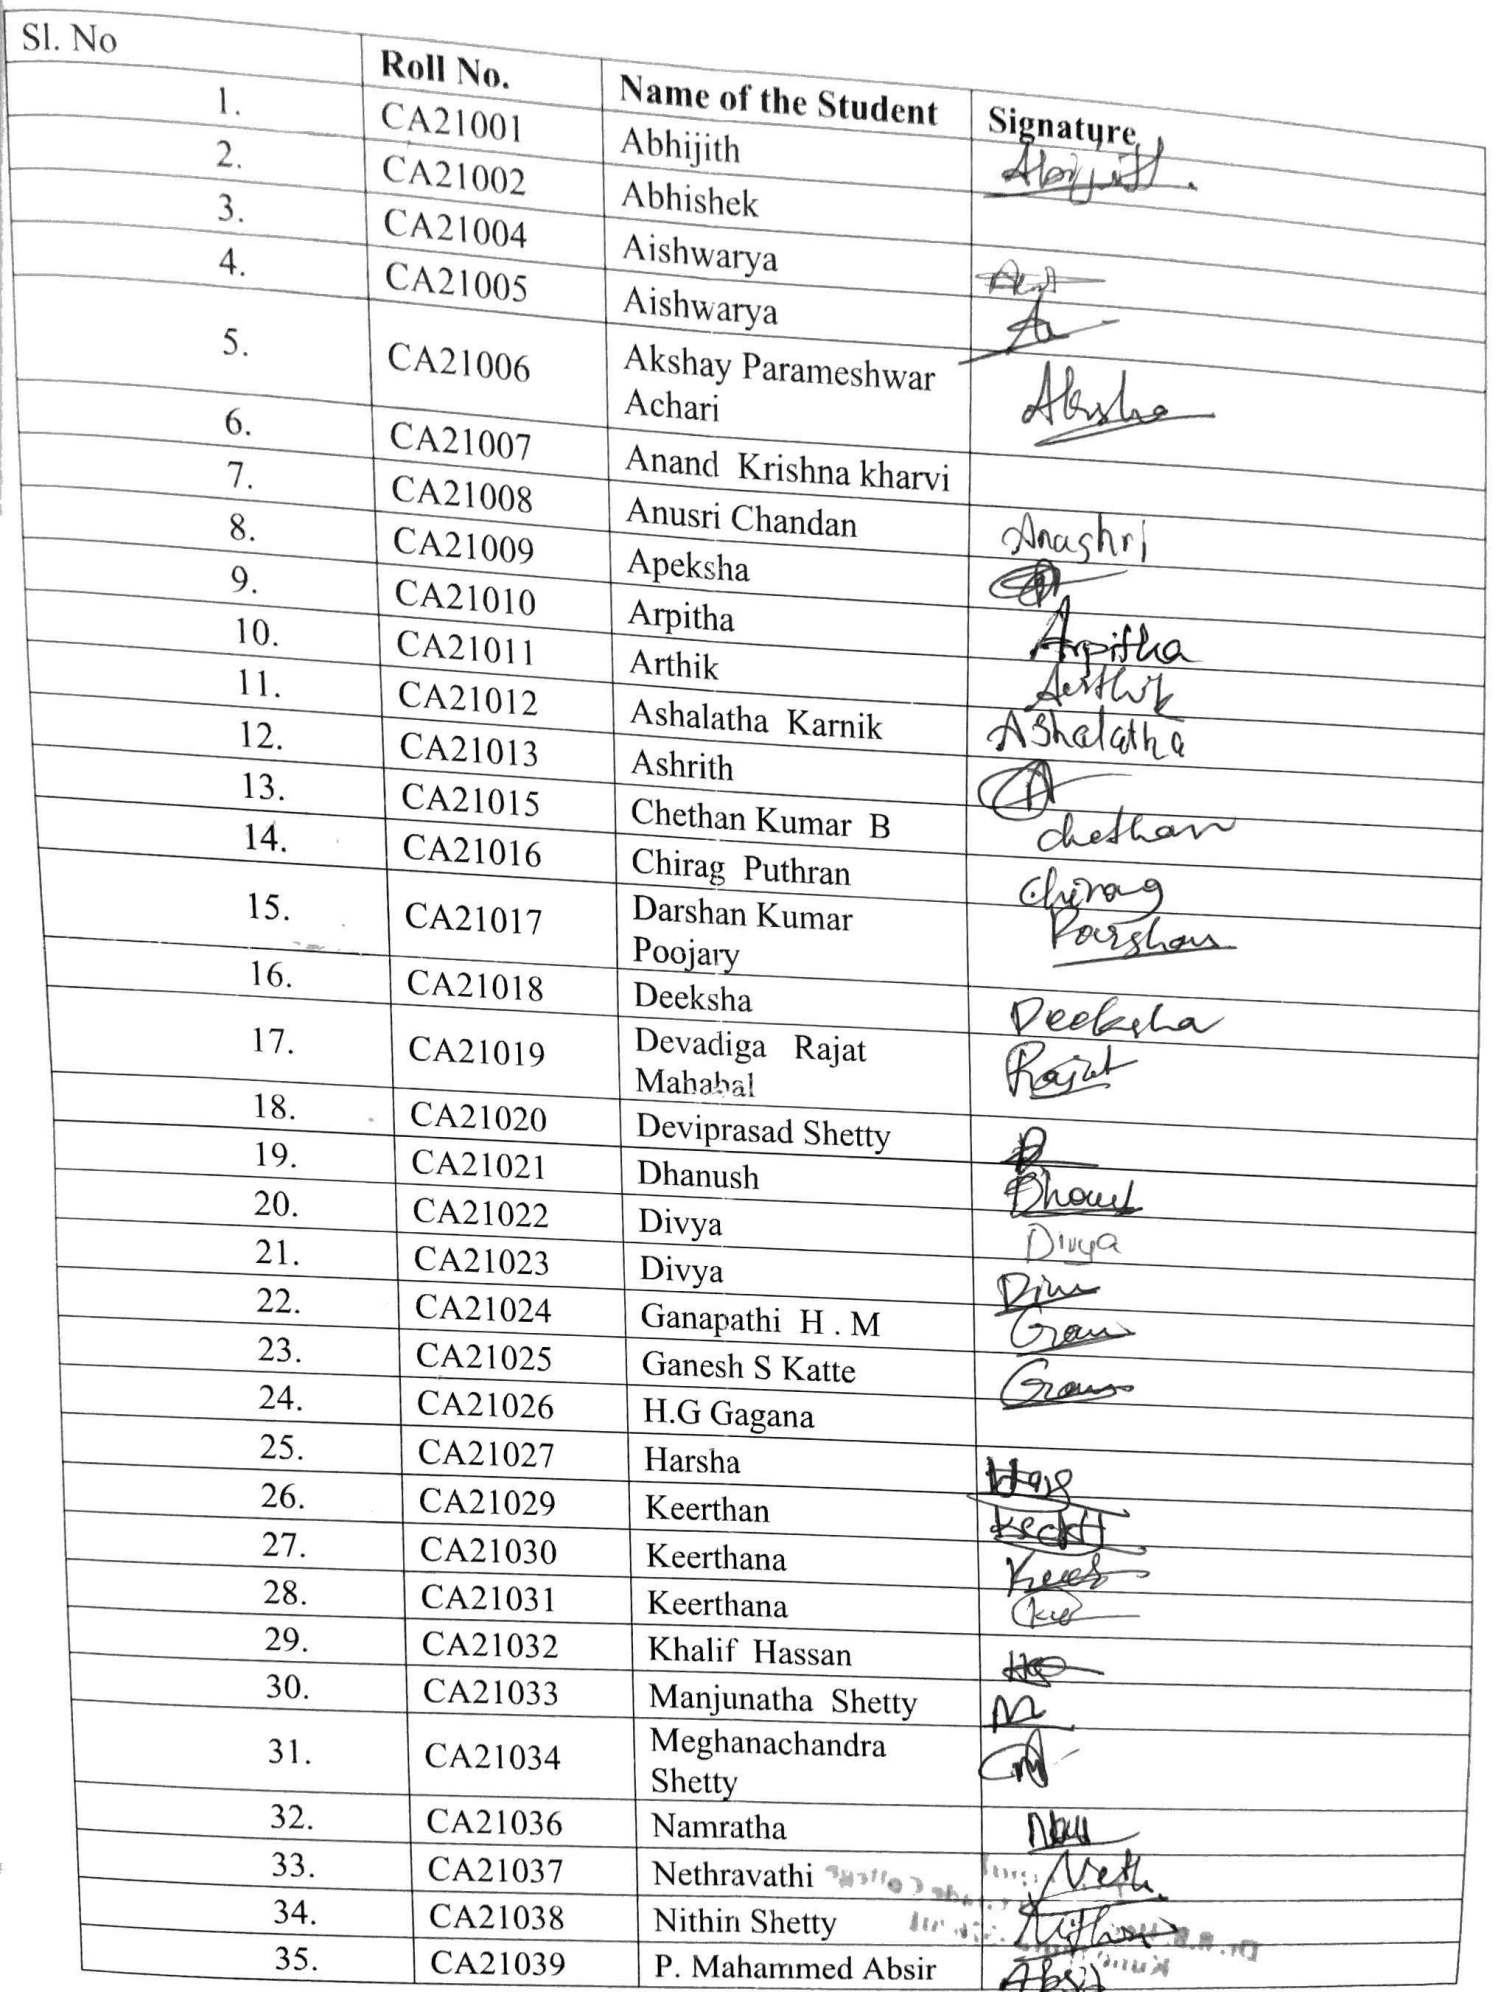 Sl. No Roll No. Name of the Student Signature
1. CA21001 Abhijith Abijith.
2. CA21002 Abhishek
3. CA21004 Aishwarya
4. CA21005 Aishwarya
5. CA21006 Akshay Parameshwar
Achari
6. CA21007 Anand Krishna kharvi
7. CA21008 Anusri Chandan Anashri
8. CA21009 Apeksha
9. CA21010 Arpitha Arpitha
10. CA21011 Arthik Aerthik
11. CA21012 Ashalatha Karnik Ashalatha
12. CA21013 Ashrith
13. CA21015 Chethan Kumar B chethan
14. CA21016 Chirag Puthran Chirag
15. CA21017 Darshan Kumar Darshan
Poojary
16. CA21018 Deeksha Deeksha
17. CA21019 Devadiga Rajat Rajat
Mahabal
18. CA21020 Deviprasad Shetty
19. CA21021 Dhanush
20. CA21022 Divya Divya
21. CA21023 Divya
22. CA21024 Ganapathi H . M
23. CA21025 Ganesh S Katte
24. CA21026 H.G Gagana
25. CA21027 Harsha
26. CA21029 Keerthan
27. CA21030 Keerthana
28. CA21031 Keerthana
29. CA21032 Khalif Hassan
30. CA21033 Manjunatha Shetty
31. CA21034 Meghanachandra
Shetty
32. CA21036 Namratha
33. CA21037 Nethravathi Neth.
34. CA21038 Nithin Shetty
35. CA21039 P. Mahammed Absir Absir